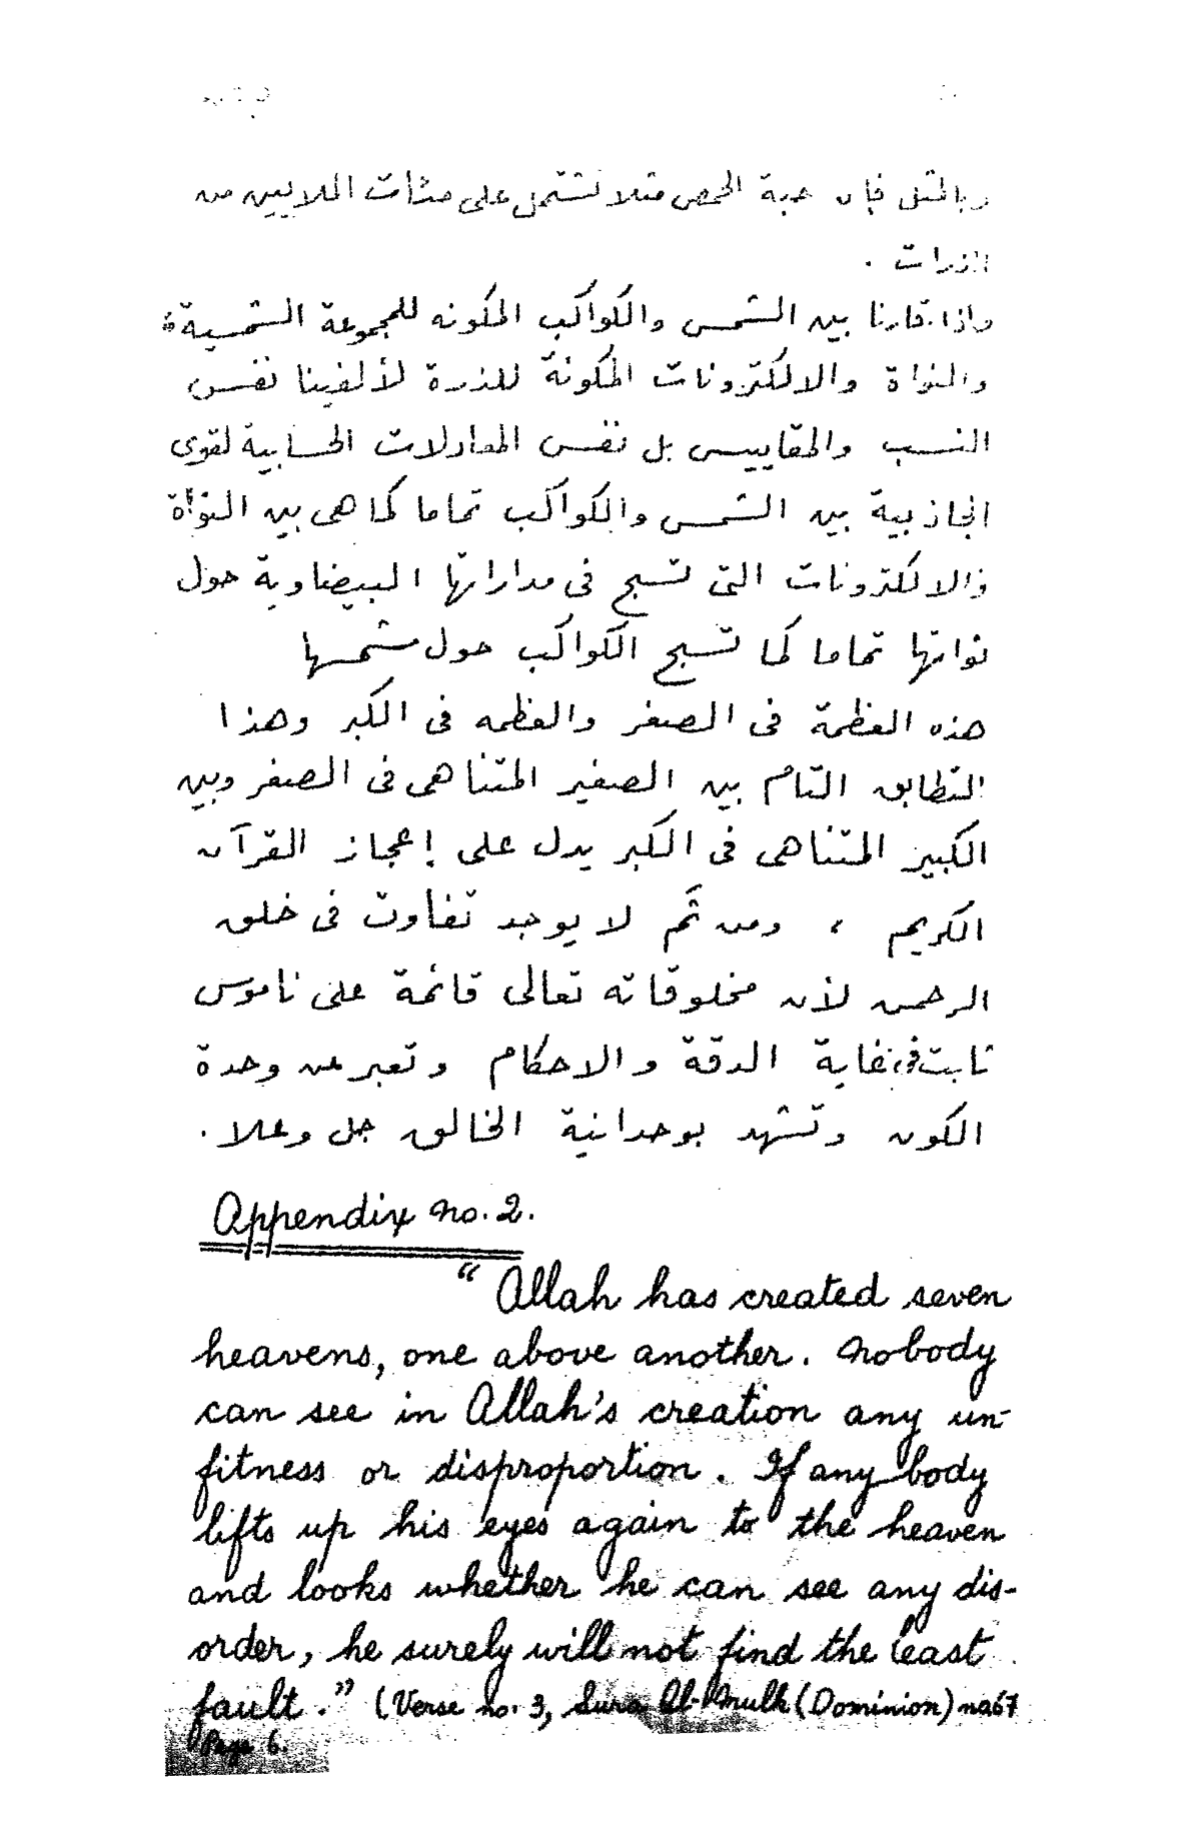 وبالمثل فإن حبة الحمص مثلا تشتمل على مئات الملايين من
الذرات .
واذا قارنا بين الشمس والكواكب المكونه للمجموعة الشمسية
والنواة والالكترونات المكونة للذرة لألفينا نفس
النسب والمقاييس بل نفس المعادلات الحسابية لقوى
الجاذبية بين الشمس والكواكب تماما كما هى بين النواة
والالكترونات التى تسبح فى مداراتها البيضاوية حول
نواتها تماما كما تسبح الكواكب حول شمسها
هذه العظمة فى الصغر والعظمه فى الكبر وهذا
التطابق التام بين الصغير المتناهى فى الصغر وبين
الكبير المتناهى فى الكبر يدل على إعجاز القرآن
الكريم ، ومن ثَم لا يوجد تفاوت فى خلق
الرحمن لأن مخلوقاته تعالى قائمة على ناموس
ثابت فى غاية الدقة والاحكام وتعبر عن وحدة
الكون وتشهد بوحدانية الخالق جل وعلا .
Appendix no. 2.
“ Allah has created seven
heavens, one above another. Nobody
can see in Allah's creation any un-
fitness or disproportion. If any body
lifts up his eyes again to the heaven
and looks whether he can see any dis-
order, he surely will not find the least
fault.” (Verse no. 3, Sura Al-Mulk (Dominion) no67
Page 6.